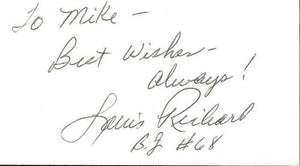 To Mike -
Best Wishes -
always!
Louis Richard
B.J #68